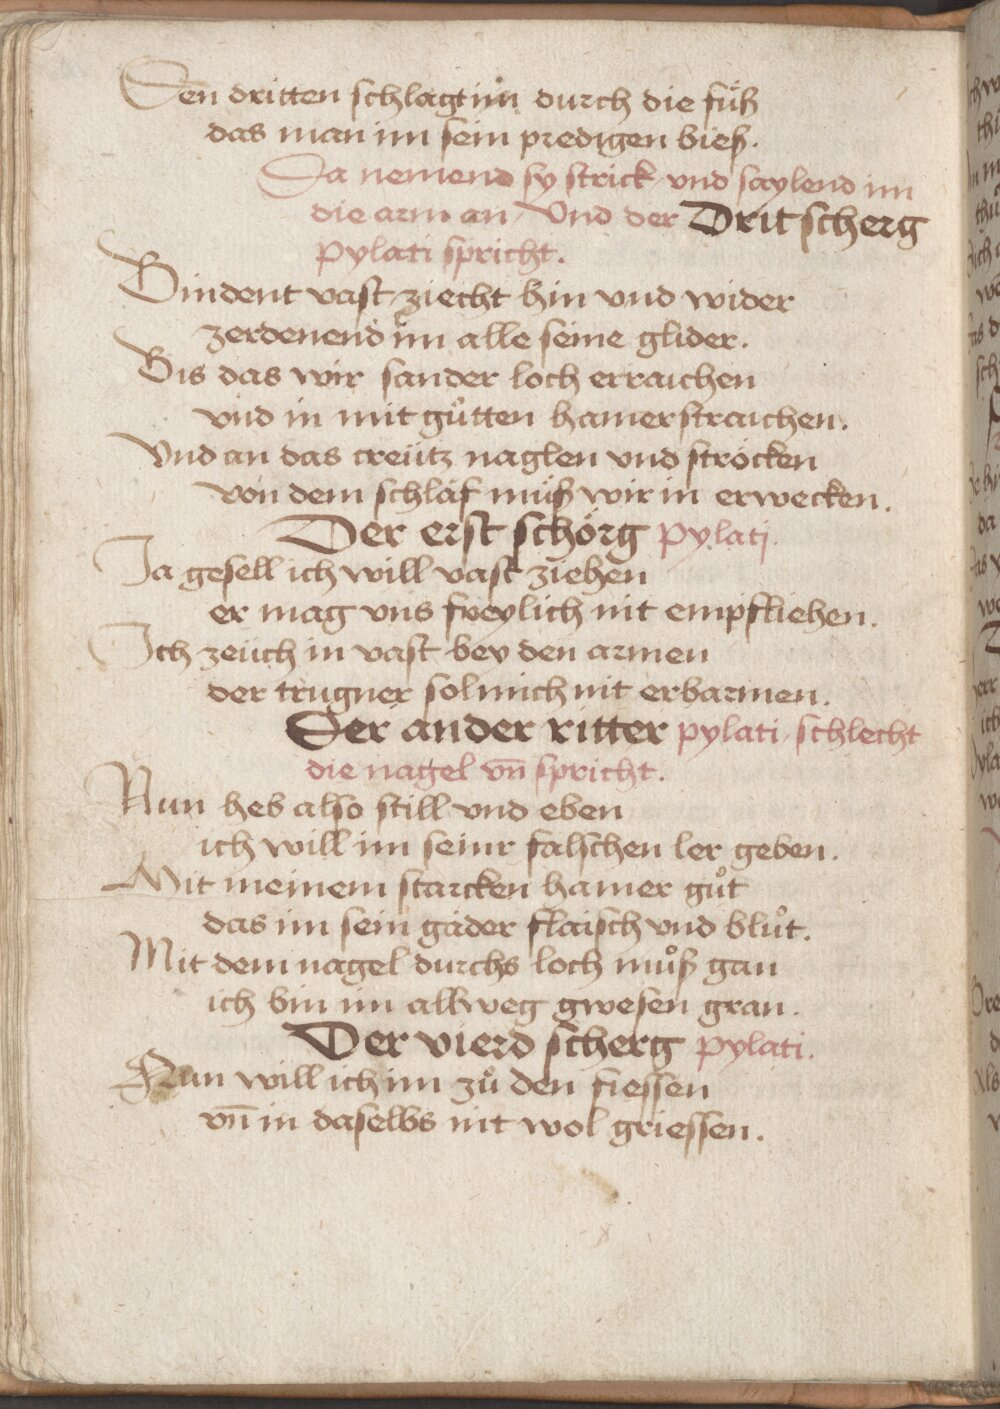 Den dritten schlagt im durch die fuͤß
das man im sein predigen bieß.
Da nemend sy strick vnd saylend im
die arm an / Vnd der Drit scherg
pylati spricht.
Bindent vast ziecht hin vnd wider
zerdenend im alle seine glider.
Bis das wir sander loch erraichen
vnd in mit guͦtten hamerstraichen.
Vnd an das creütz naglen vnd ströcken
von dem schlaf muͤß wir in erwecken.
Der erst schörg pylatj.
Ja gesell ich will vast ziehen
er mag vns freylich nit empfliehen.
Ich zeüch in vast bey den armen
der trugner sol mich nit erbarmen.
Der ander ritter pylati schlecht
die nagel vn̄ spricht.
Nun heb also still vnd eben
ich will im seinr falschen ler geben.
Mit meinem starcken hamer guͦt
das im sein gäder flaisch vnd bluͦt.
Mit dem nagel durchs loch muͦß gan
ich bin im allweg gwesen gran.
Der vierd scherg pylati.
Nun will ich im zuͦ den fiessen
vn̄ in daselbs nit wol griessen.